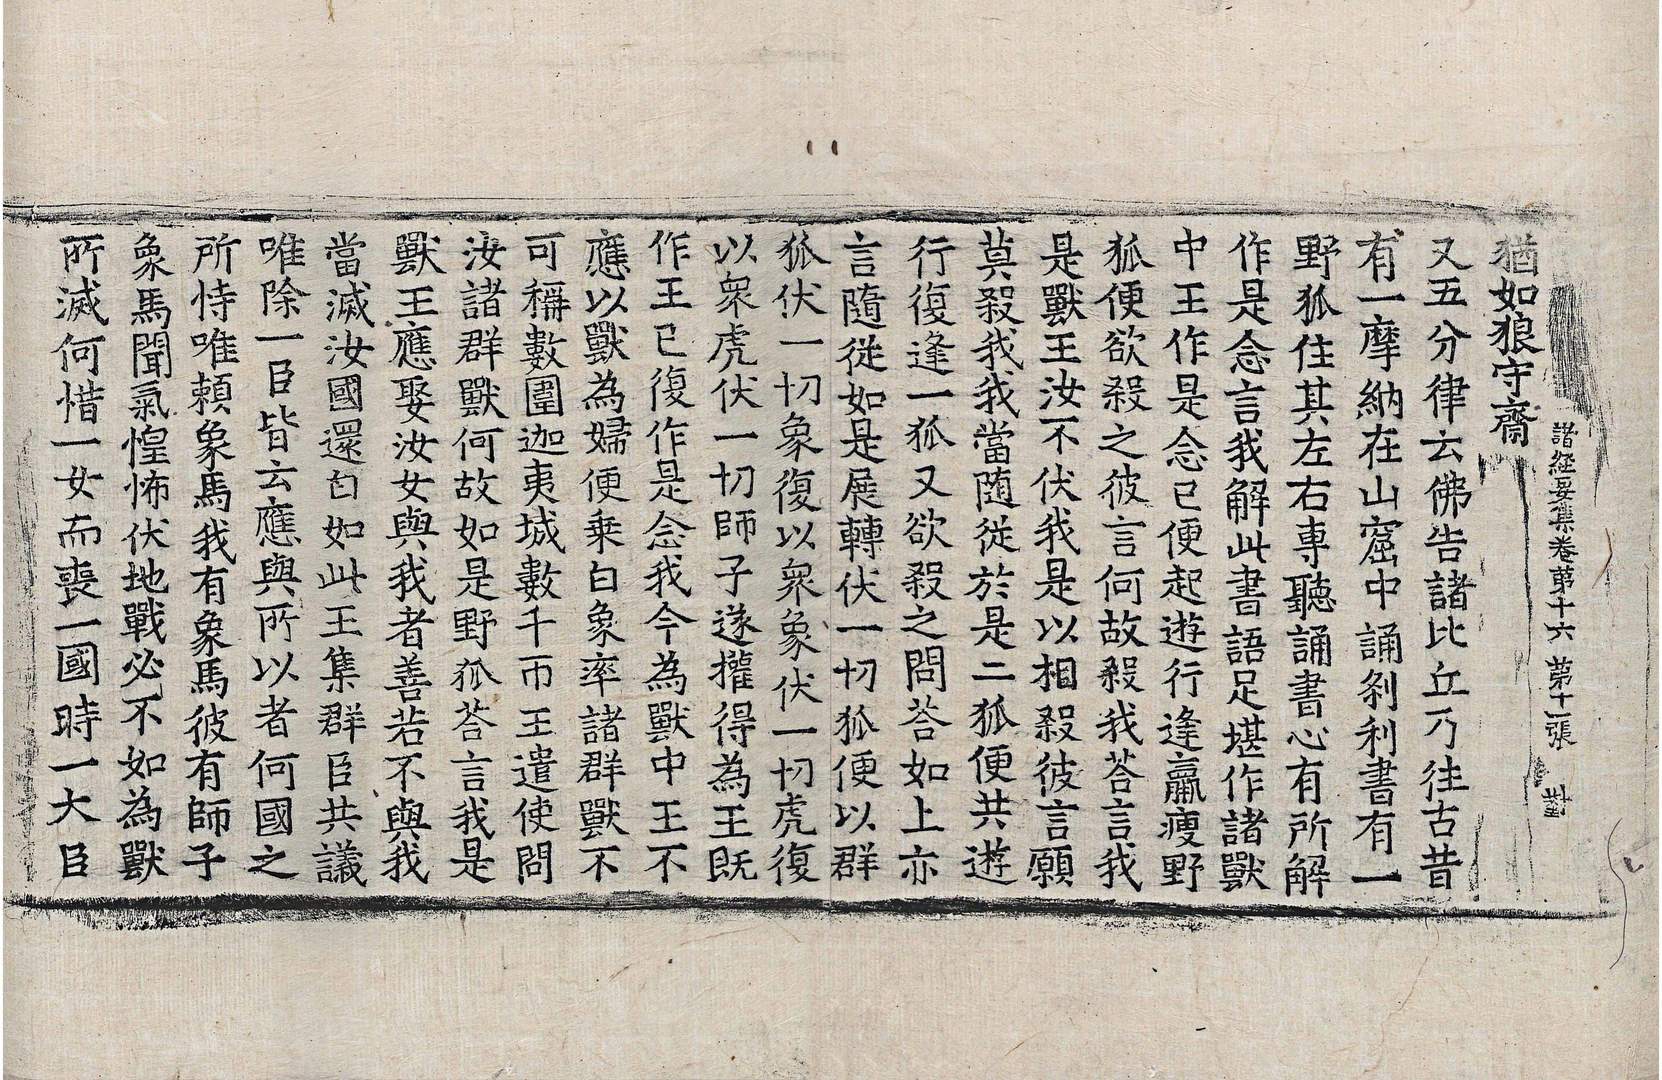 諸經要集卷第十六 第十一張 對
猶如狼守齋
又五分律云佛告諸比丘乃往古昔
有一摩納在山窟中誦刹利書有一
野狐住其左右專聽誦書心有所解
作是念言我解此書語足堪作諸獸
中王作是念已便起遊行逢羸瘦野
狐便欲殺之彼言何故殺我荅言我
是獸王汝不伏我是以相殺彼言願
莫殺我我當隨從於是二狐便共遊
行復逢一狐又欲殺之問荅如上亦
言隨從如是展轉伏一切狐便以群
狐伏一切象復以衆象伏一切虎復
以衆虎伏一切師子遂獲得為王既
作王已復作是念我今為獸中王不
應以獸為婦便乗白象率諸群獸不
可稱數圍迦夷城數千帀王遣使問
汝諸群獸何故如是野狐荅言我是
獸王應娶汝女與我者善若不與我
當滅汝國還白如此王集群臣共議
唯除一臣皆云應與所以者何國之
所恃唯賴象馬我有象馬彼有師子
象馬聞氣惶怖伏地戰必不如為獸
所滅何惜一女而喪一國時一大臣